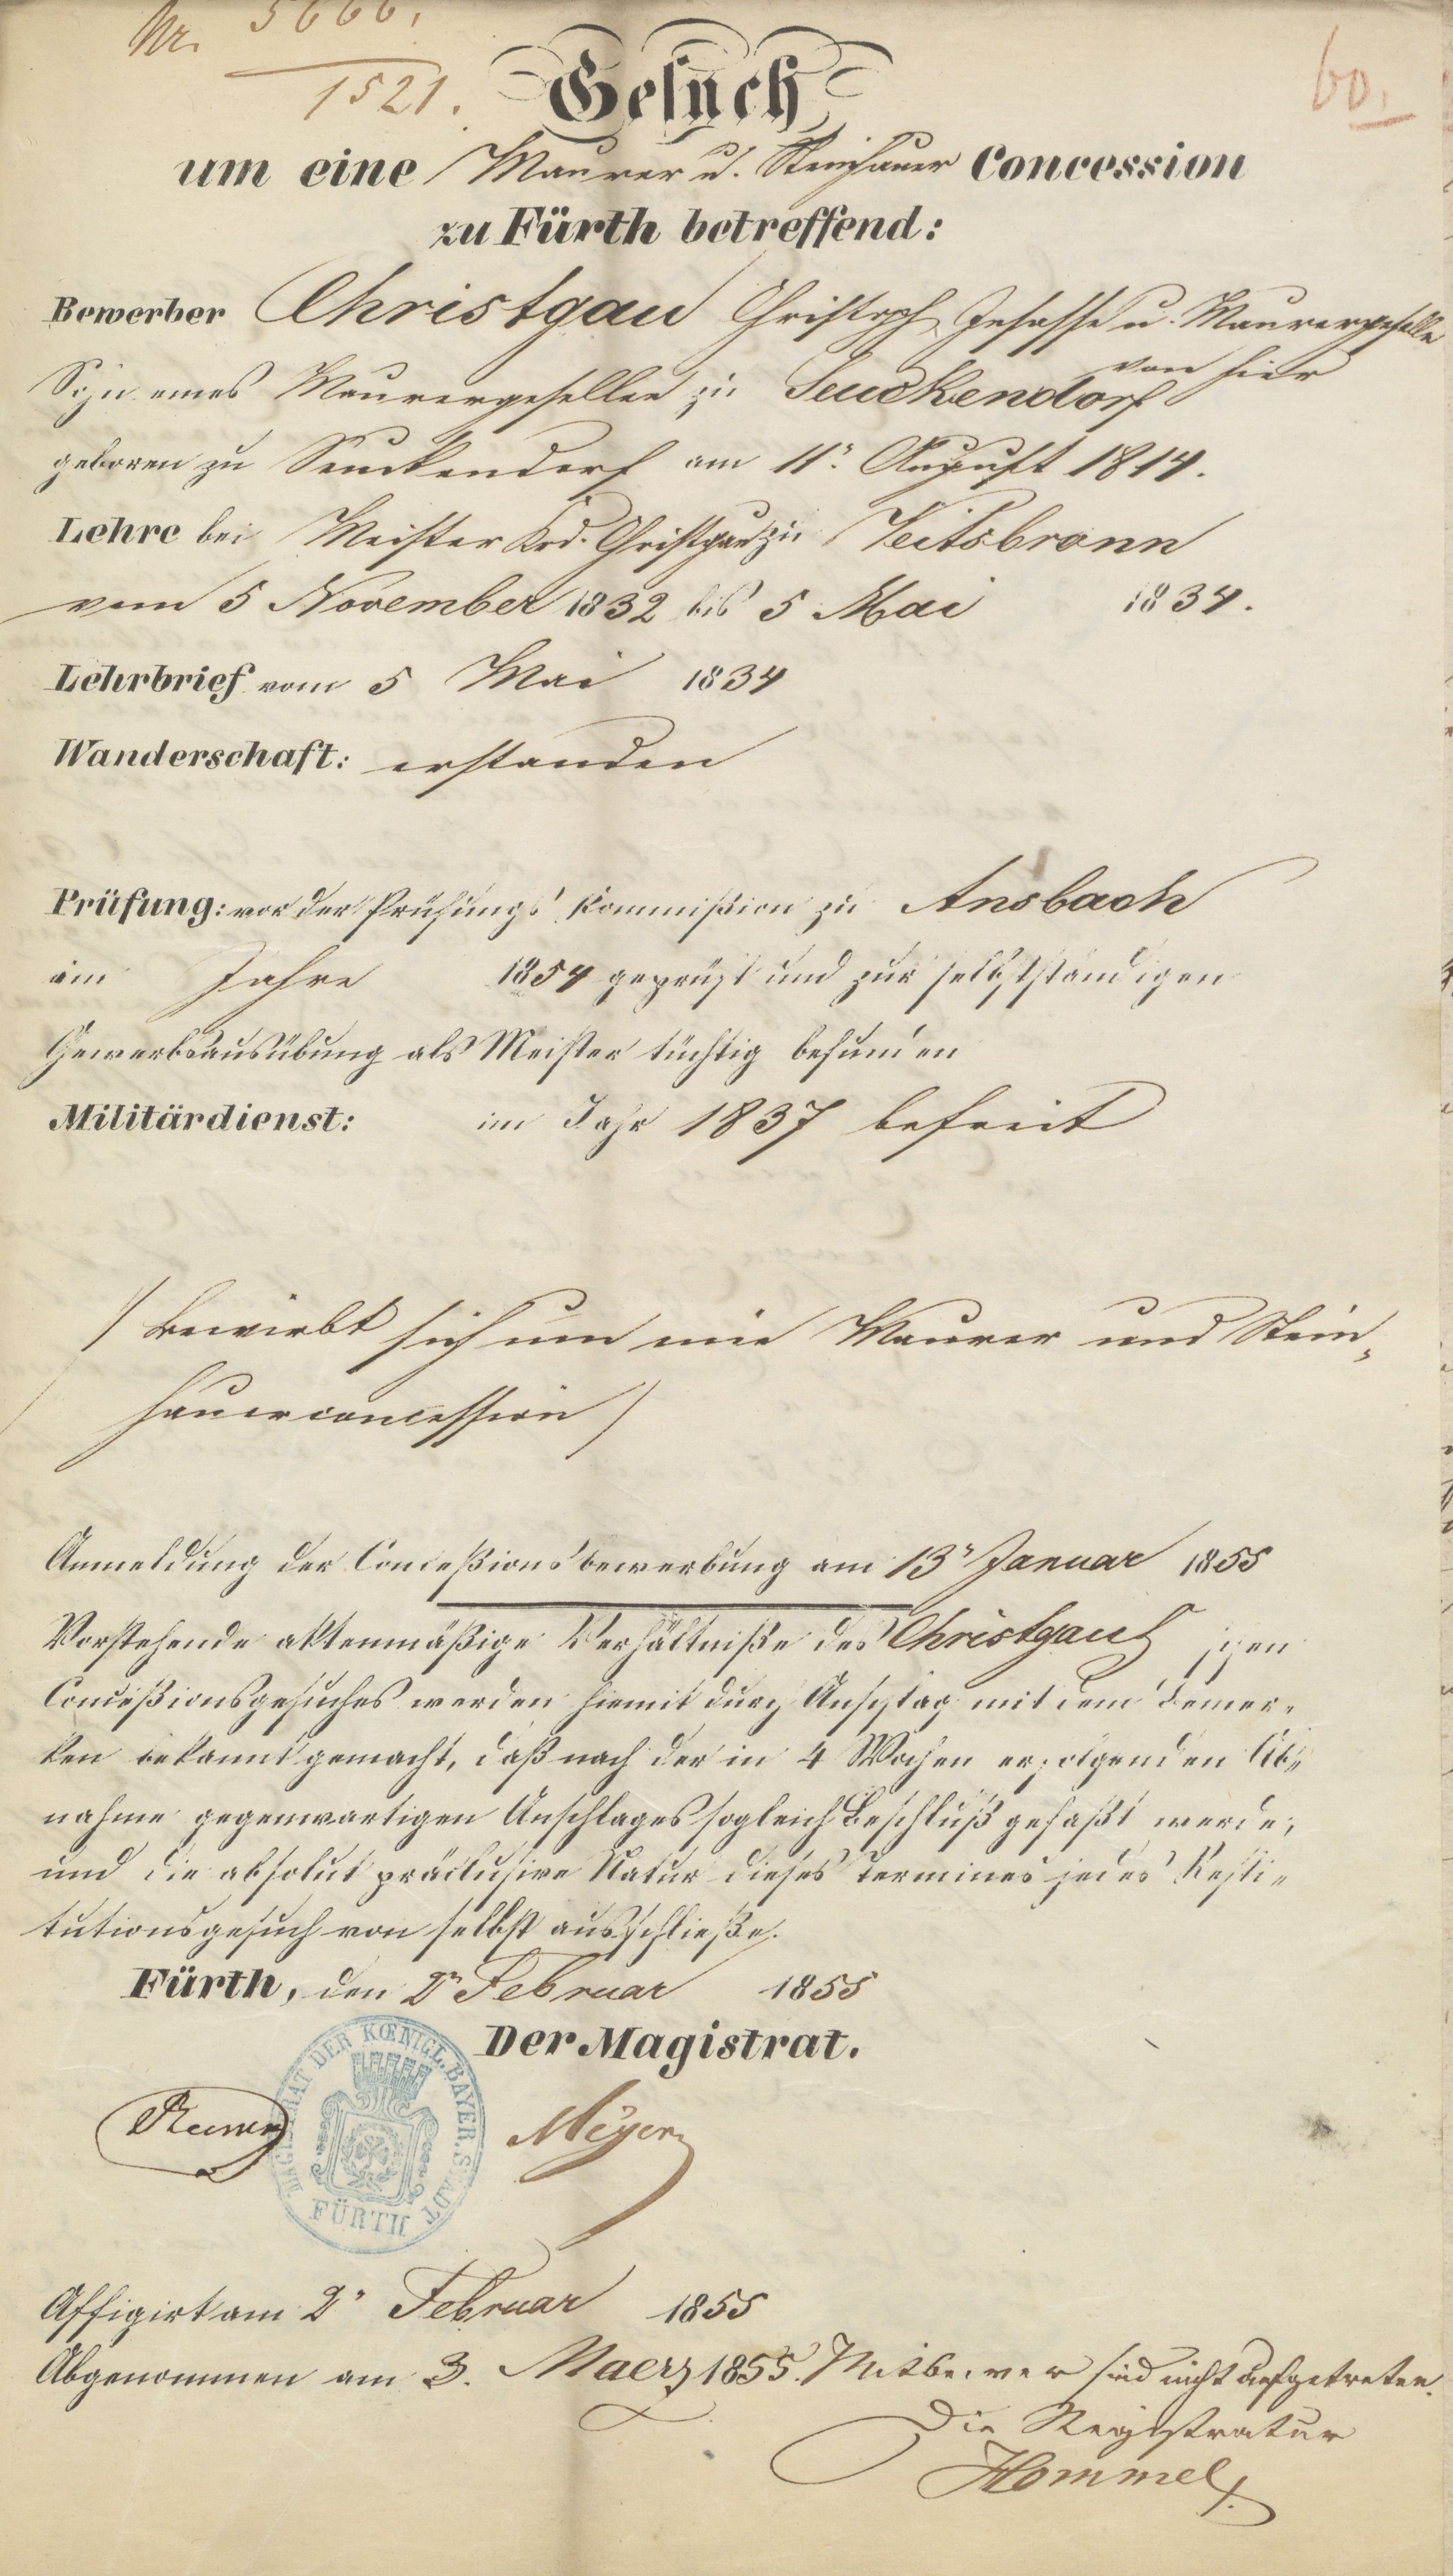 Nr. 5666.
1521.
60.
Gesuch
um eine Maurer u. Steinhauer Concession
zu Fürth betreffend:
Bewerber Christgau Christoph Insasse u. Maurergeselle
von hier
Sohn eines Maurergesellen zu Seuckendorf
geboren zu Seuckendorf am 11ⁿ August 1814.
Lehre bei Meister Krd. Christgau zu Veitsbronn
vom 5 November 1832 bis 5 Mai 1834.
Lehrbrief vom 5 Mai 1834
Wanderschaft: erstanden
Prüfung: vor der Prüfungs Kommißion zu Ansbach
im Jahre 1854 geprüft und zur selbstständigen
Gewerbsausübung als Meister tüchtig befunden
Militärdienst: im Jahr 1837 befreit
/ bewirbt sich um eine Maurer und Stein„
hauerconcession /
Anmeldung der Conceßionsbewerbung am 13ⁿ Januar 1855
Vorstehende aktenmäßige Verhältniße des Christgau'schen
Conceßionsgesuches werden hiemit durch Anschlag mit dem Bemer„
ken bekannt gemacht, daß nach der in 4 Wochen erfolgenden Ab„
nahme gegenwärtigen Anschlages sogleich Beschluß gefaßt werde,
und die absolut präclusive Natur dieses Termines jedes Resti„
tutionsgesuch von selbst ausschließe.
Fürth, den 2ⁿ Februar 1855
Der Magistrat.
MAGISTRAT DER KŒNIGL. BAYER. STADT
FÜRTH
Meyer
Affigirt am 2ⁿ Februar 1855
Abgenommen am 3. Maerz 1855. Mitbewerber sind nicht aufgetreten.
Die Registratur
Hommel